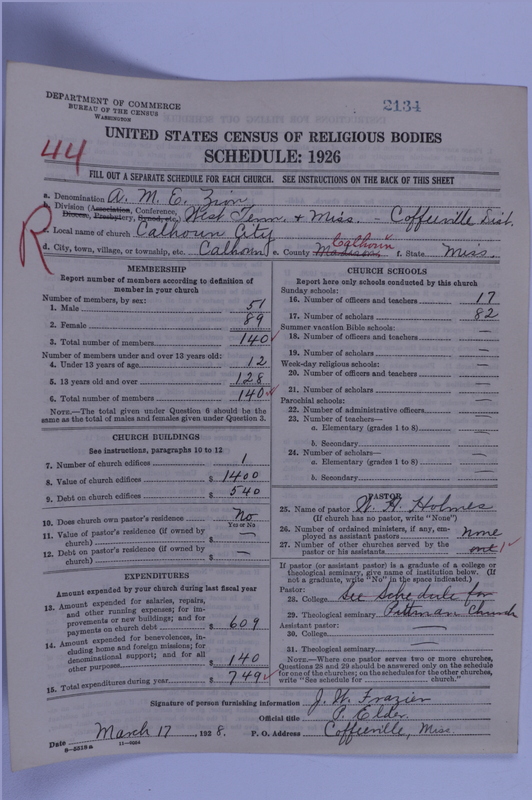 DEPARTMENT OF COMMERCE
BUREAU OF THE CENSUS
WASHINGTON
2134
UNITED STATES CENSUS OF RELIGIOUS BODIES
SCHEDULE: 1926
44
FILL OUT A SEPARATE SCHEDULE FOR EACH CHURCH. SEE INSTRUCTIONS ON THE BACK OF THIS SHEET
R
a. Denomination A. M. E. Zion
b. Division (Association, Conference, Diocese, Presbytery, Synod, etc.) West Tenn. & Miss. - Coffeeville Dist.
c. Local name of church Calhoun City
d. City, town, village, or township, etc. Calhoun e. County Madison Calhoun f. State Miss.
MEMBERSHIP
Report number of members according to definition of
member in your church
Number of members, by sex:
1. Male 51
2. Female 89
3. Total number of members 140
Number of members under and over 13 years old:
4. Under 13 years of age 12
5. 13 years old and over 128
6. Total number of members 140
NOTE.—The total given under Question 6 should be the
same as the total of males and females given under Question 3.
CHURCH BUILDINGS
See instructions, paragraphs 10 to 12
7. Number of church edifices 1
8. Value of church edifices $ 1400
9. Debt on church edifices $ 540
10. Does church own pastor's residence No
Yes or No
11. Value of pastor's residence (if owned by
church) $ —
12. Debt on pastor's residence (if owned by
church) $ —
EXPENDITURES
Amount expended by your church during last fiscal year
13. Amount expended for salaries, repairs,
and other running expenses; for im-
provements or new buildings; and for
payments on church debt $ 609
14. Amount expended for benevolences, in-
cluding home and foreign missions; for
denominational support; and for all
other purposes $ 140
15. Total expenditures during year $ 749
CHURCH SCHOOLS
Report here only schools conducted by this church
Sunday schools:
16. Number of officers and teachers 17
17. Number of scholars 82
Summer vacation Bible schools:
18. Number of officers and teachers —
19. Number of scholars —
Week-day religious schools:
20. Number of officers and teachers —
21. Number of scholars —
Parochial schools:
22. Number of administrative officers —
23. Number of teachers—
a. Elementary (grades 1 to 8) —
b. Secondary —
24. Number of scholars—
a. Elementary (grades 1 to 8) —
b. Secondary —
PASTOR
25. Name of pastor Holmes
(If church has no pastor, write "None")
26. Number of ordained ministers, if any, em-
ployed as assistant pastors none
27. Number of other churches served by the
pastor or his assistants one 1
If pastor (or assistant pastor) is a graduate of a college or
theological seminary, give name of institution below. (If
not a graduate, write "No" in the space indicated.)
Pastor:
28. College See schedule for
29. Theological seminary Pittman Church
Assistant pastor:
30. College —
31. Theological seminary —
NOTE.—Where one pastor serves two or more churches,
Questions 28 and 29 should be answered only on the schedule
for one of the churches; on the schedules for the other churches,
write "See schedule for church."
Signature of person furnishing information J. W. Frazier
Official title P. Elder.
Date March 17, 1928. P. O. Address Coffeeville, Miss.
8-5518a 11-8664